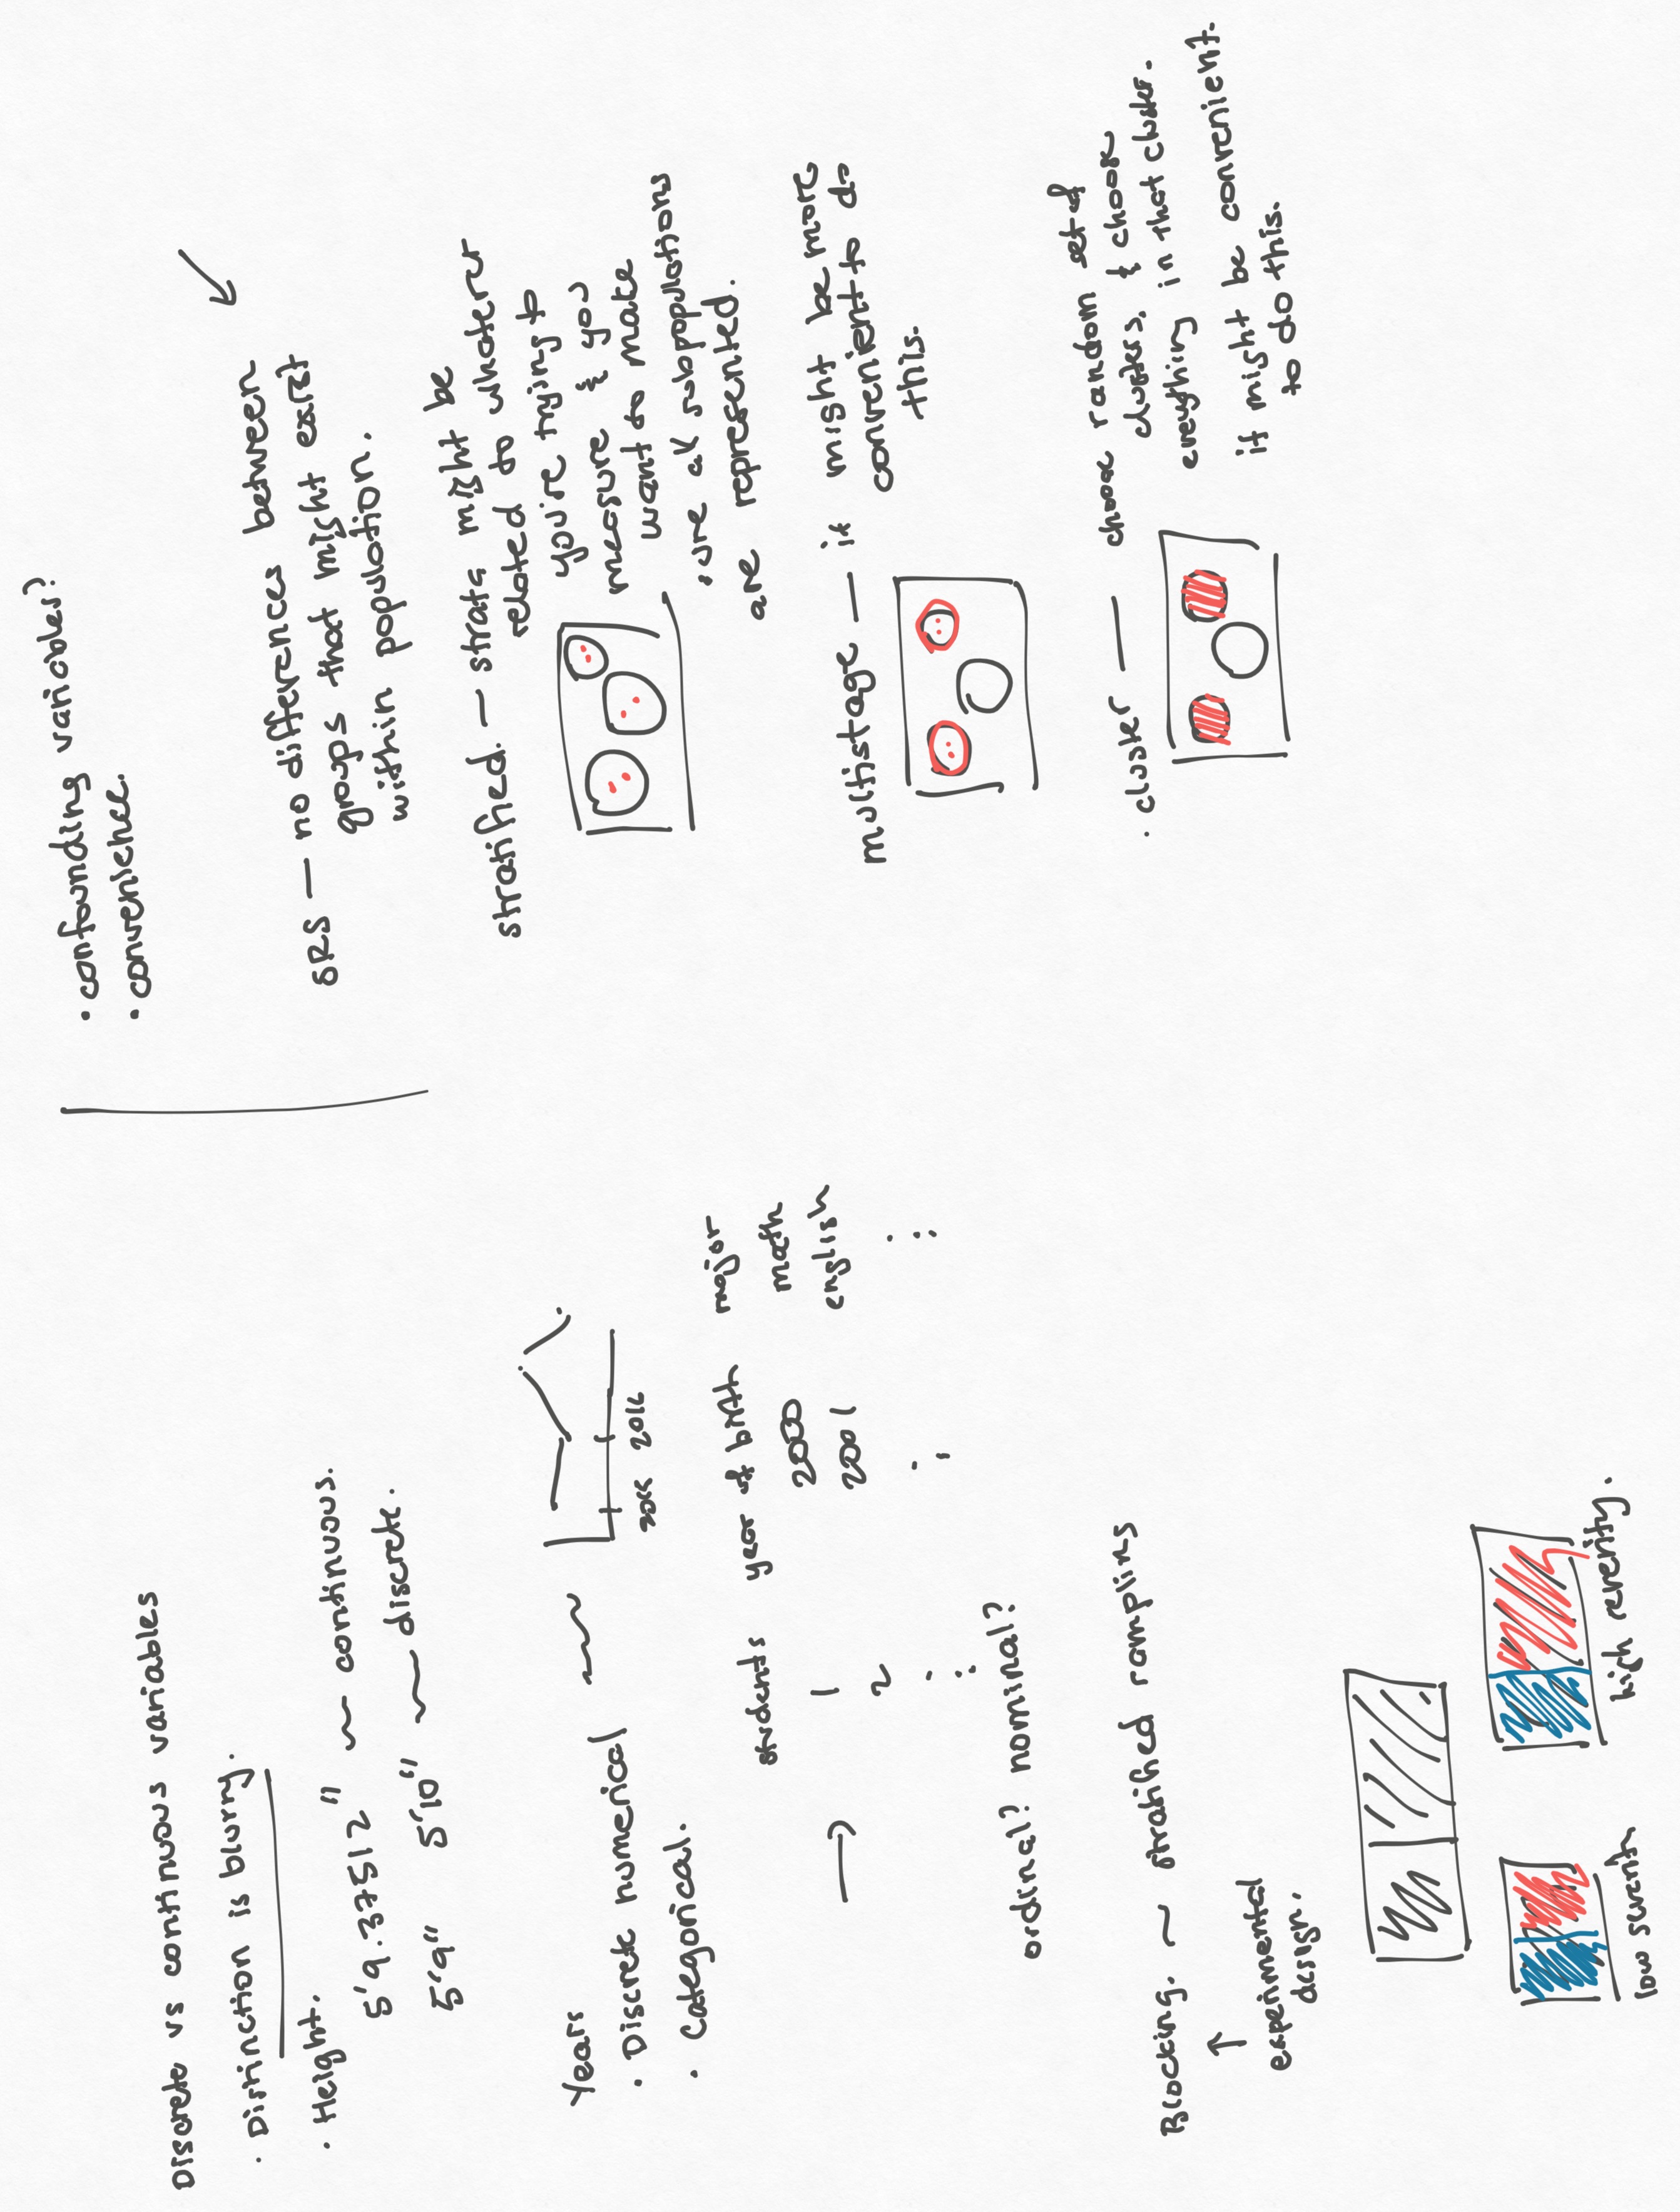 Discrete vs continuous variables
· Distinction is blurry.
· Height.
5'9.37512" ~ continuous.
5'9" 5'10" ~ discrete.
Years
· Discrete numerical
· Categorical.
2015 2016
students year of birth major
1 2000 math
2 2001 english
ordinal? nominal?
Blocking. ~ stratified sampling
↑
experimental
design.
low severity
high severity.
· confounding variables?
· convenience.
SRS — no differences between
groups that might exist
within population.
stratified. — strata might be
related to whatever
you're trying to
measure & you
want to make
sure all subpopulations
are represented.
multistage — it might be more
convenient to do
this.
· cluster — choose random set of
clusters, & choose
everything in that cluster.
it might be convenient.
to do this.